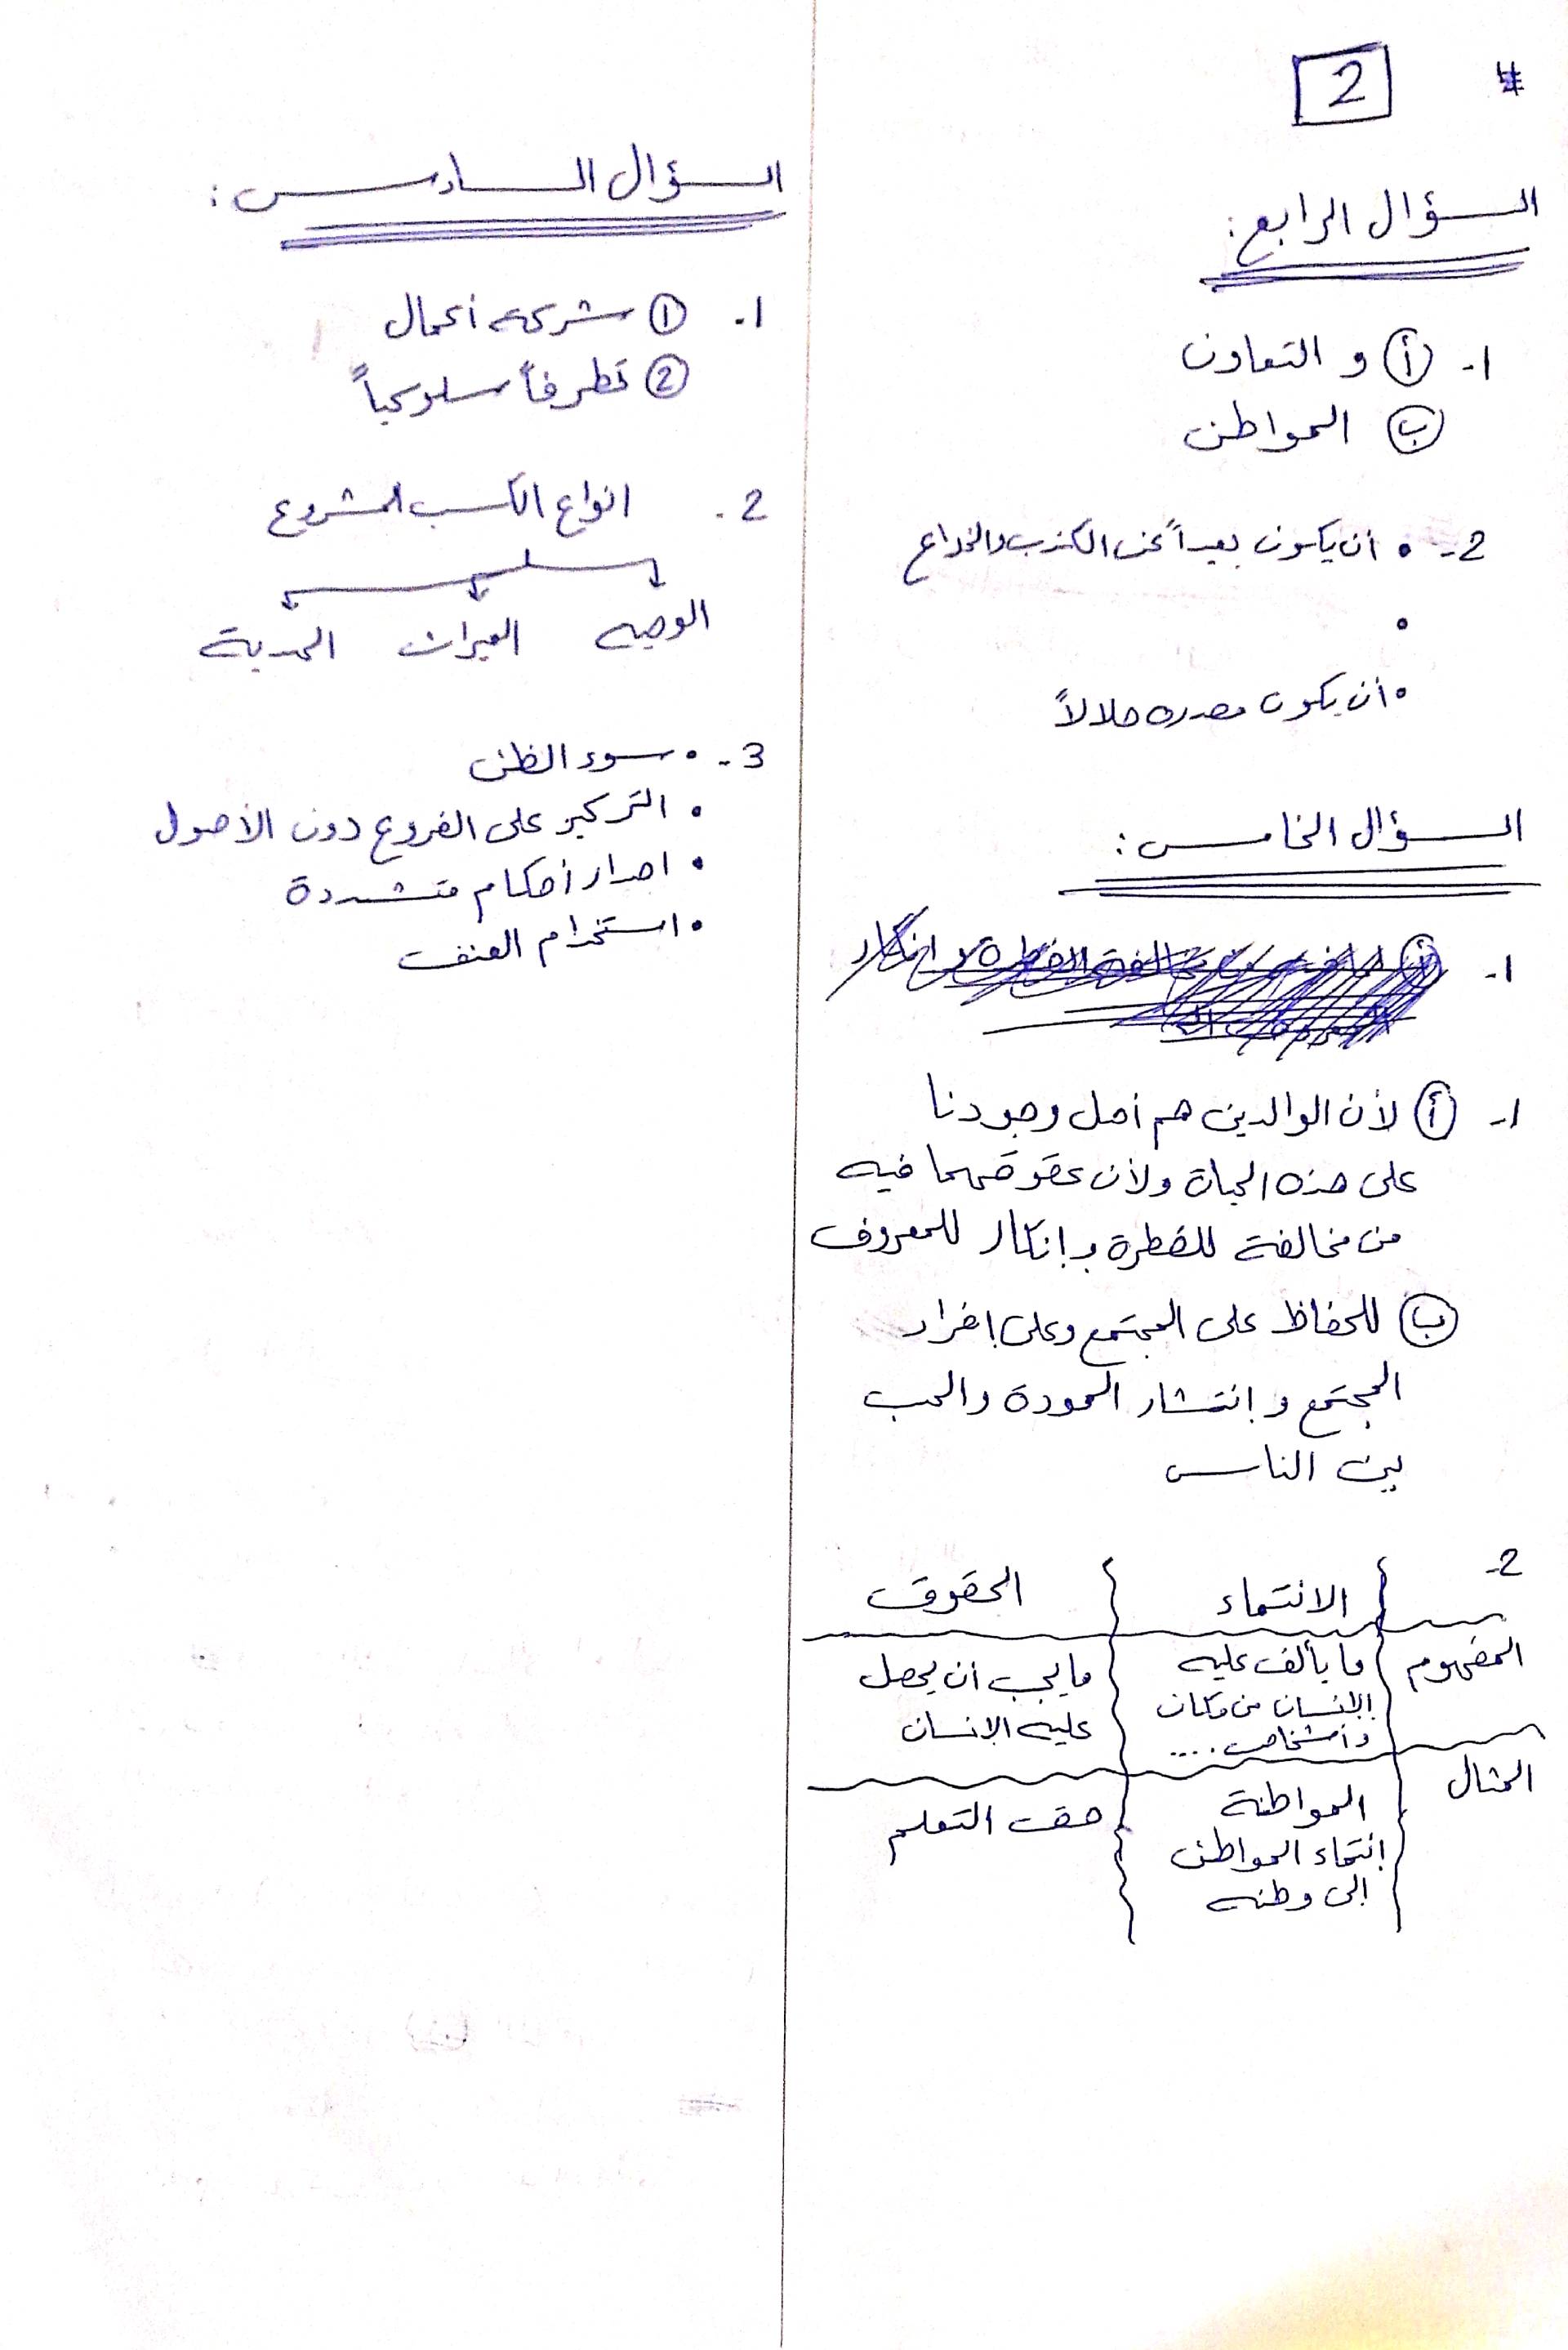 2
السؤال الرابع:
1- أ و التعاون
ب المواطن
2- • أن يكون بعيداً عن الكذب والخداع
•
• أن يكون مصدره حلالاً
السؤال الخامس:
1-
1- أ لأن الوالدين هم أصل وجودنا
على هذه الحياة ولأن عقوقهما فيه
من مخالفة للفطرة وإنكار للمعروف
ب للحفاظ على المجتمع وعلى افراد
المجتمع وانتشار المودة والحب
بين الناس
2-
الانتماء الحقوق
المفهوم ما يألف عليه ما يجب أن يحصل
الإنسان من مكان عليه الإنسان
وأشخاص ....
المثال المواطنة حق التعلم
إنتماء المواطن
إلى وطنه
السؤال السادس:
1- 1 شركة أعمال
2 تطرفاً سلوكياً
2- انواع الكسب المشروع
الوصيه الميراث الهدية
3- • سوء الظن
• التركيز على الفروع دون الأصول
• اصدار أحكام متشددة
• استخدام العنف